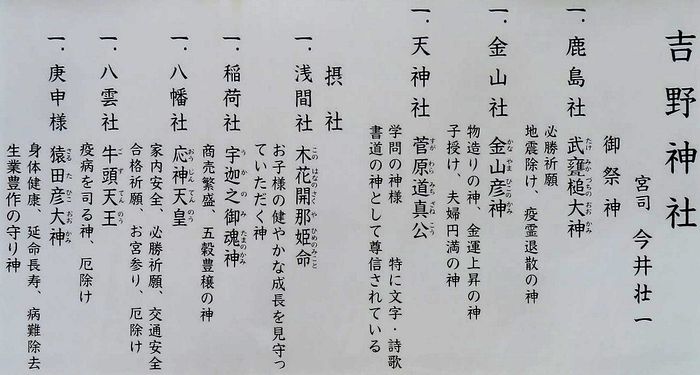 吉野神社
宮司 今井壮一
御祭神
一.鹿島社 武甕槌大神
必勝祈願
地震除け、疫霊退散の神
一.金山社 金山彦神
物造りの神、金運上昇の神
子授け、夫婦円満の神
一.天神社 菅原道真公
学問の神様 特に文字・詩歌
書道の神として尊信されている
摂社
一.浅間社 木花開那姫命
お子様の健やかな成長を見守っ
ていただく神
一.稲荷社 宇迦之御魂神
商売繁盛、五穀豊穣の神
一.八幡社 応神天皇
家内安全、必勝祈願、交通安全
合格祈願 お宮参り、厄除け
一.八雲社 牛頭天王
疫病を司る神、厄除け
一.庚申様 猿田彦大神
身体健康、延命長寿、病難除去
生業豊作の守り神